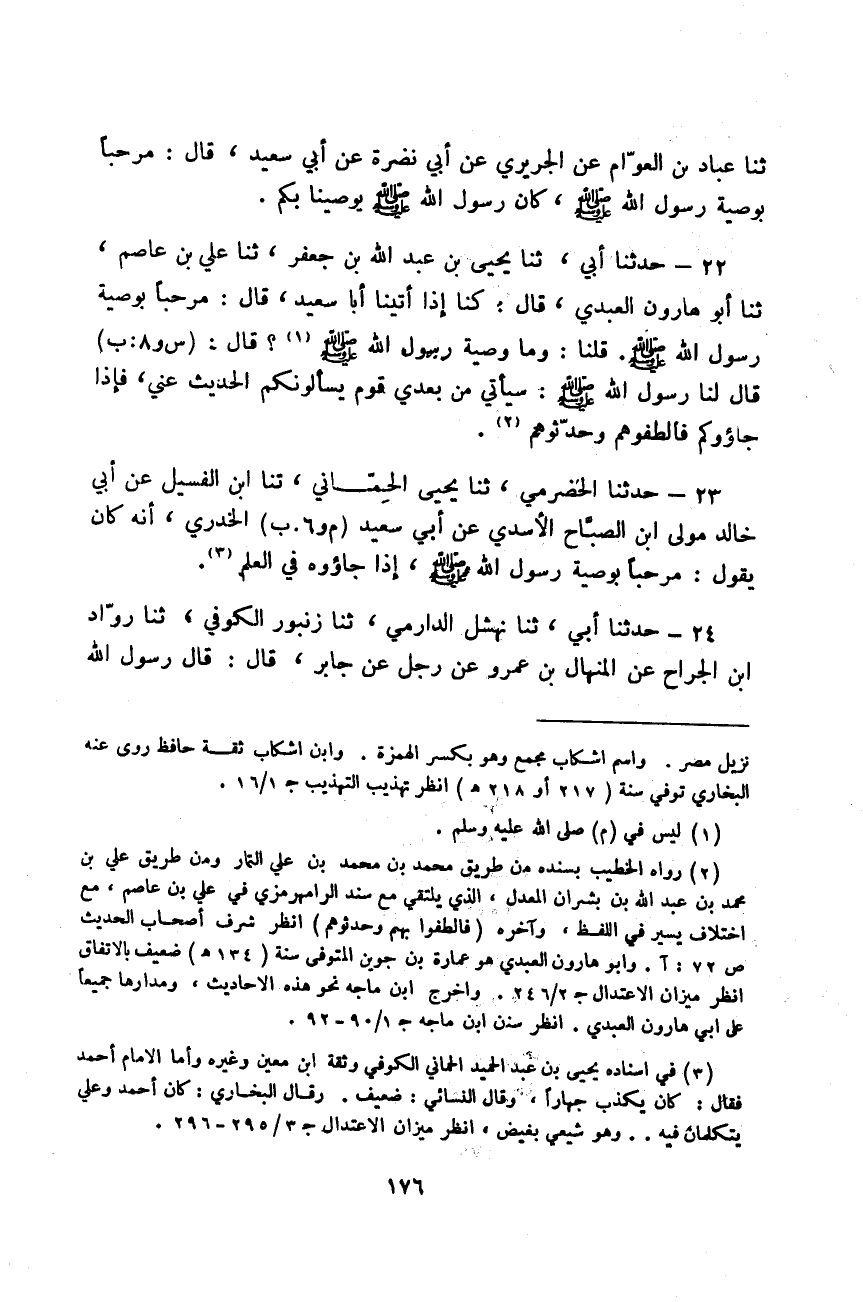 ثنا عباد بن العوّام عن الجريري عن أبي نضرة عن أبي سعيد ، قال : مرحباً
بوصية رسول الله ﷺ ، كان رسول الله ﷺ يوصينا بكم .
٢٢ – حدثنا أبي ، ثنا يحيى بن عبد الله بن جعفر ، ثنا علي بن عاصم ،
ثنا أبو هارون العبدي ، قال : كنا إذا أتينا أبا سعيد ، قال : مرحباً بوصية
رسول الله ﷺ . قلنا : وما وصية رسول الله ﷺ (١) ؟ قال : (س و٨:ب)
قال لنا رسول الله ﷺ : سيأتي من بعدي قوم يسألونكم الحديث عني، فإذا
جاؤوكم فالطفوهم وحدّثوهم (٢) .
٢٣ – حدثنا الحَضرمي ، ثنا يحيى الحِمّـاني ، ثنا ابن الفسيل عن أبي
خالد مولى ابن الصبَّاح الأسدي عن أبي سعيد (م و٦.ب) الخدري ، أنه كان
يقول : مرحباً بوصية رسول الله ﷺ ، إذا جاؤوه في العلم (٣).
٢٤ – حدثنا أبي ، ثنا نهشل الدارمي ، ثنا زنبور الكوفي ، ثنا روّاد
ابن الجراح عن المنهال بن عمرو عن رجل عن جابر ، قال : قال رسول الله
نزيل مصر . واسم اشكاب مجمع وهو بكسر الهمزة . وابن اشكاب ثقـة حافظ روى عنه
البخاري توفي سنة ( ٢١٧ أو ٢١٨ ه ) انظر تهذيب التهذيب ج ١٦/١ .
(١) ليس في (م) صلى الله عليه وسلم .
(٢) رواه الخطيب بسنده من طريق محمد بن محمد بن علي التمار ومن طريق علي بن
محمد بن عبد الله بن بشران المعدل ، الذي يلتقي مع سند الرامهرمزي في علي بن عاصم ، مع
اختلاف يسير في اللفظ ، وآخره ( فالطفوا بهم وحدثوهم ) انظر شرف أصحاب الحديث
ص ٧٢ : آ . وابو هارون العبدي هو عمارة بن جوين المتوفى سنة ( ١٣٤ ه ) ضعيف بالاتفاق
انظر ميزان الاعتدال ج ٢٤٦/٢ . واخرج ابن ماجه نحو هذه الاحاديث ، ومدارها جميعاً
على ابي هارون العبدي . انظر سنن ابن ماجه ج ٩٠/١ – ٩٢ .
(٣) في اسناده يحيى بن عبد الحميد الحماني الكوفي وثقة ابن معين وغيره وأما الامام أحمد
فقال : كان يكذب جهاراً ، وقال النسائي : ضعيف . رقال البخاري : كان أحمد وعلي
يتكلمان فيه . . وهو شيعي بفيض ، انظر ميزان الاعتدال ج ٢٩٥/٣ – ٢٩٦ .
١٧٦